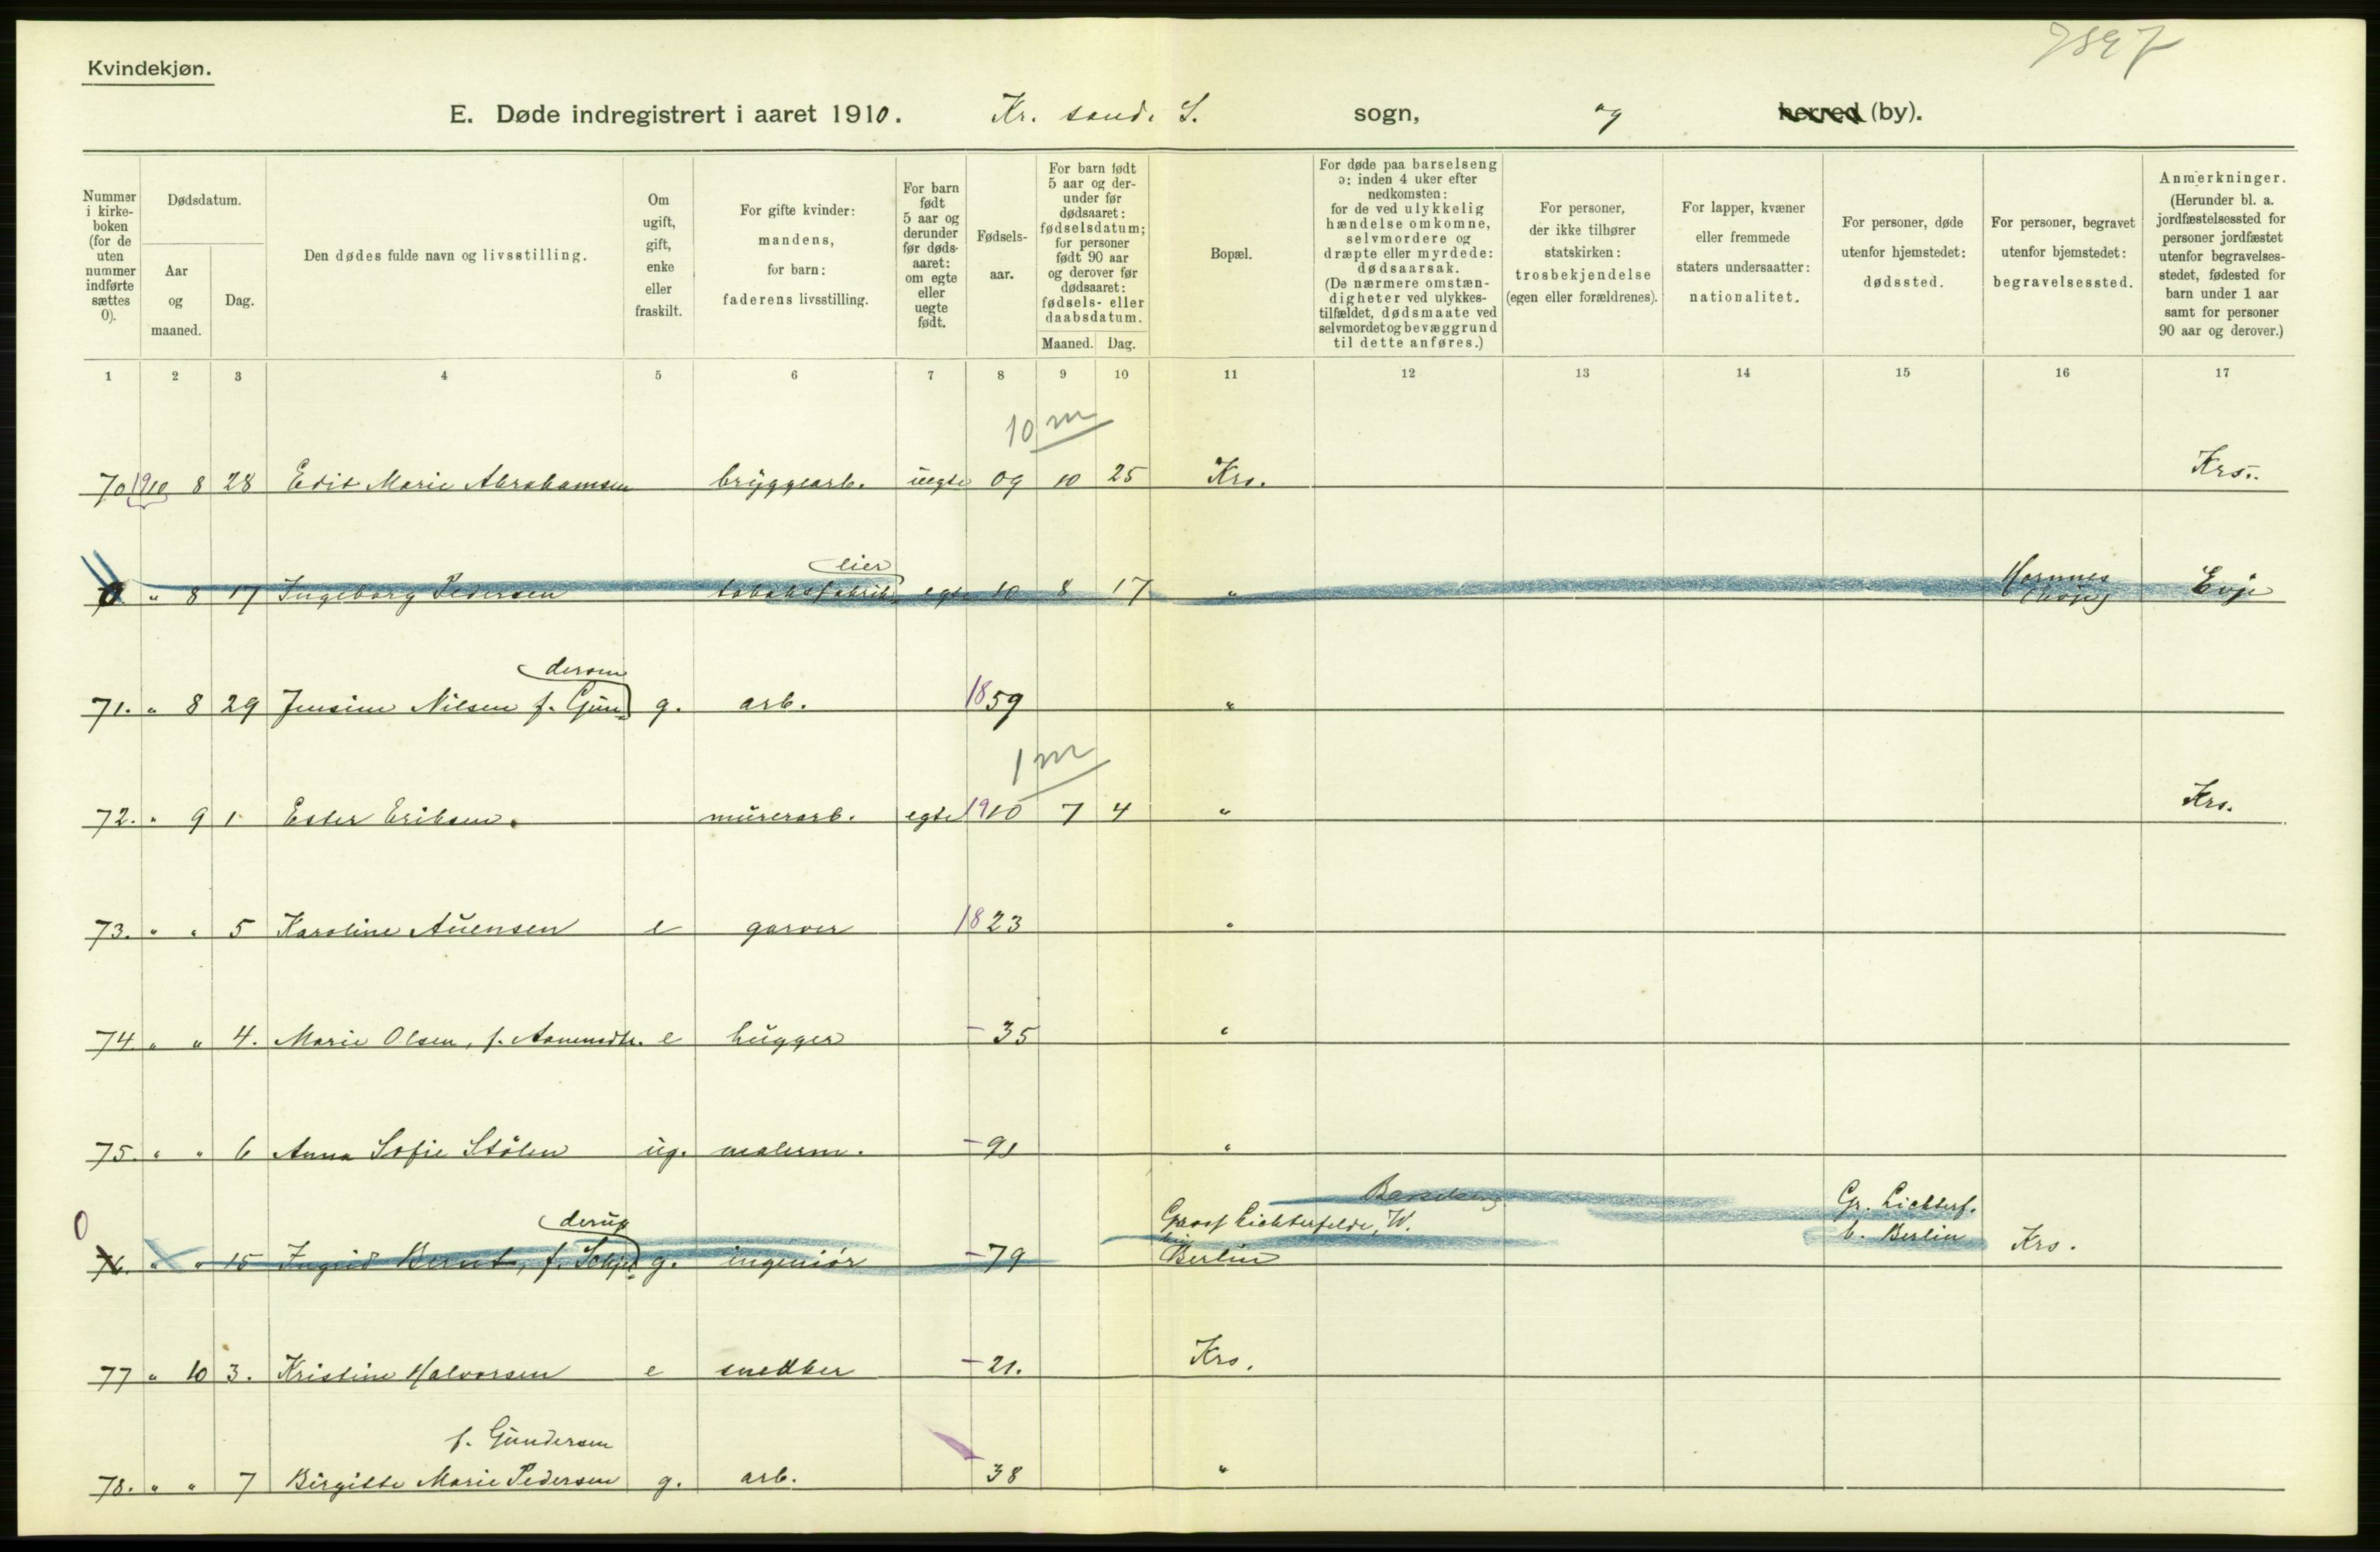 7897
Kvindekjøn.
E. Døde indregistrert i aaret 1910. Kr. sands S. sogn, og herred (by).
Nummer i kirkeboken (for de uten nummer indførte sættes 0).
Dødsdatum.
Aar og maaned.
Dag.
Den dødes fulde navn og livsstilling.
Om ugift, gift, enke eller fraskilt.
For gifte kvinder: mandens, for barn: faderens livsstilling.
For barn født 5 aar og derunder før dødsaaret: om egte eller uegte født.
Fødselsaar.
For barn født 5 aar og derunder før dødsaaret: fødselsdatum; for personer født 90 aar og derover før dødsaaret: fødsels- eller daabsdatum.
Maaned. Dag.
Bopæl.
For døde paa barselseng ɔ: inden 4 uker efter nedkomsten: for de ved ulykkelig hændelse omkomne, selvmordere og dræpte eller myrdede: dødsaarsak. (De nærmere omstændigheter ved ulykkestilfældet, dødsmaate ved selvmordet og bevæggrund til dette anføres.)
For personer, der ikke tilhører statskirken: trosbekjendelse (egen eller forældrenes).
For lapper, kvæner eller fremmede staters undersaatter: nationalitet.
For personer, døde utenfor hjemstedet: dødssted.
For personer, begravet utenfor hjemstedet: begravelsessted.
Anmerkninger. (Herunder bl. a. jordfæstelsessted for personer jordfæstet utenfor begravelsesstedet, fødested for barn under 1 aar samt for personer 90 aar og derover.)
1 2 3 4 5 6 7 8 9 10 11 12 13 14 15 16 17
10 m
70 1910 8 28 Edit Marie Abrahamsen bryggearb. uegte 09 10 25 Krs. Krs.
eier
0 " 8 17 Ingeborg Pedersen tobaksfabrik egte 10 8 17 " Hornnes Evje
dersen
71. " 8 29 Jensine Nilsen f. Gun g. arb. 1859 "
1 m
72. " 9 1 Ester Eriksen. murerarb. egte 1910 7 4 " Krs.
73. " " 5 Karoline Auensen e garver 1823 "
74 " " 4. Marie Olsen, f. Aanensdtr. e hugger – 35 "
75. " " 6 Anna Sofie Stölen ug. malerm. – 91 "
Barselseng
derup Gross Lichterfelde, W. Gr. Lichterf.
0 76. " " 15 Ingrid Bernt, f. Schjel g. ingeniör – 79 Berlin b. Berlin Krs.
77 " 10 3. Kristine Halvorsen e snedker – 21. Krs.
f. Gundersen
78. " " 7 Birgitte Marie Pedersen g. arb. 38 "